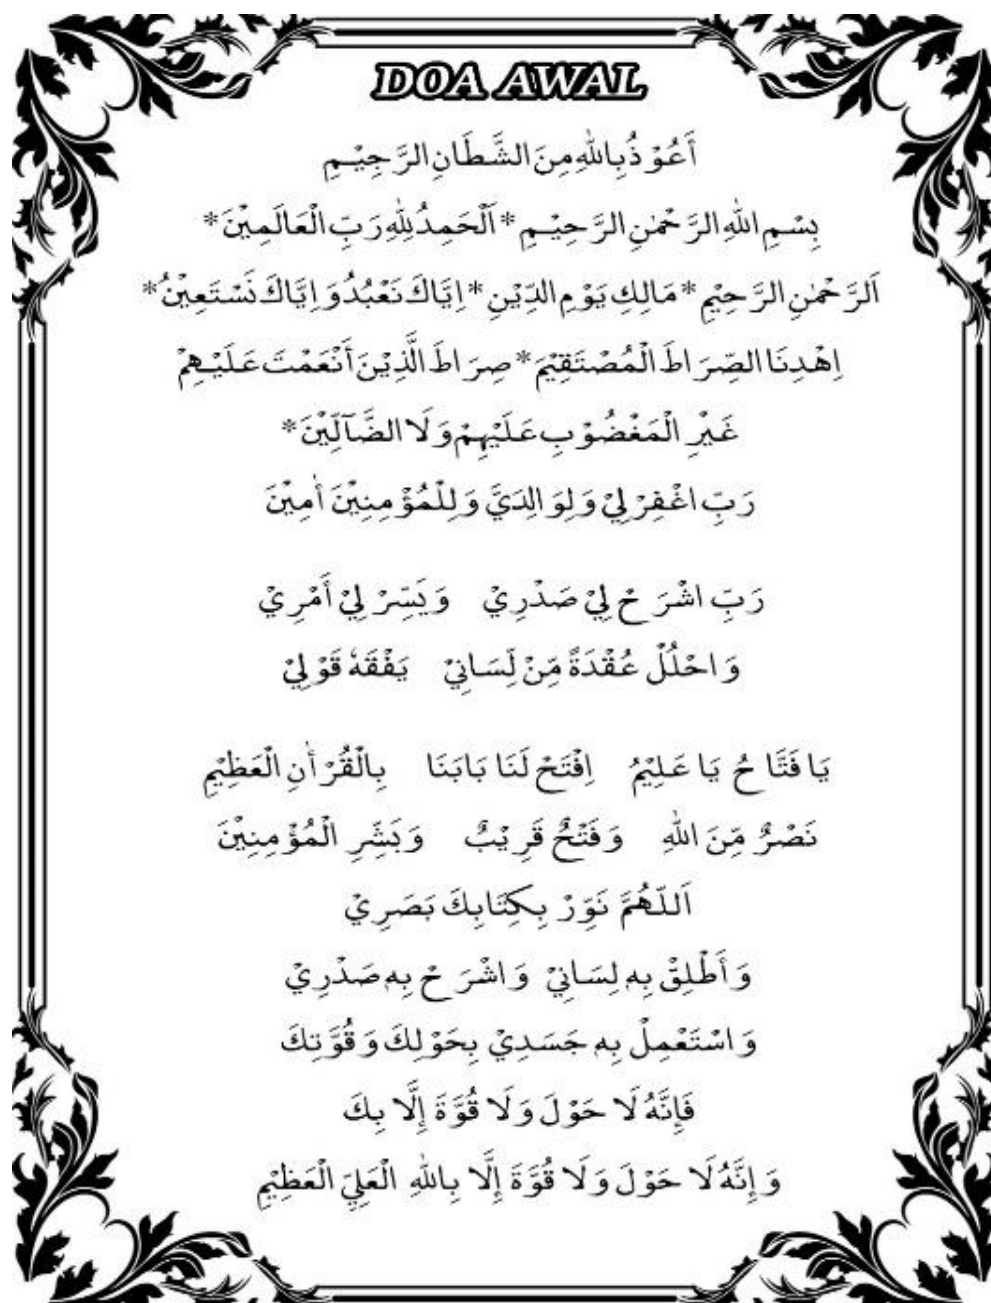 DOA AWAL
أَعُوْذُبِاللهِ مِنَ الشَّطَانِ الرَّجِيْمِ
بِسْمِ اللهِ الرَّحْمٰنِ الرَّحِيْمِ * اَلْحَمِدُلِلهِ رَبِّ الْعَالَمِيْنَ *
اَلرَّحْمٰنِ الرَّحِيْمِ * مَالِكِ يَوْمِ الدِّيْنِ * اِيَّاكَ نَعْبُدُ وَاِيَّاكَ نَسْتَعِيْنُ *
اِهْدِنَا الصِّرَاطَ الْمُصْتَقِيْمَ * صِرَاطَ الَّذِيْنَ أَنْعَمْتَ عَلَيْهِمْ
غَيْرِ الْمَغْضُوْبِ عَلَيْهِمْ وَلَا الضَّآلِّيْنَ *
رَبِّ اغْفِرْ لِيْ وَلِوَالِدَيَّ وَلِلْمُؤْمِنِيْنَ أٰمِيْنَ
رَبِّ اشْرَحْ لِيْ صَدْرِيْ وَيَسِّرْ لِيْ أَمْرِيْ
وَاحْلُلْ عُقْدَةً مِّنْ لِّسَانِيْ يَفْقَهٗ قَوْلِيْ
يَا فَتَّاحُ يَا عَلِيْمُ اِفْتَحْ لَنَا بَابَنَا بِالْقُرْأٰنِ الْعَظِيْمِ
نَصْرٌ مِّنَ اللهِ وَفَتْحٌ قَرِيْبٌ وَبَشِّرِ الْمُؤْمِنِيْنَ
اَللّٰهُمَّ نَوِّرْ بِكِتَابِكَ بَصَرِيْ
وَأَطْلِقْ بِه لِسَانِيْ وَاشْرَحْ بِه صَدْرِيْ
وَاسْتَعْمِلْ بِه جَسَدِيْ بِحَوْلِكَ وَقُوَّتِكَ
فَإِنَّهُ لَا حَوْلَ وَلَا قُوَّةَ إِلَّا بِكَ
وَإِنَّهُ لَا حَوْلَ وَلَا قُوَّةَ إِلَّا بِاللهِ الْعَلِيِّ الْعَظِيْمِ